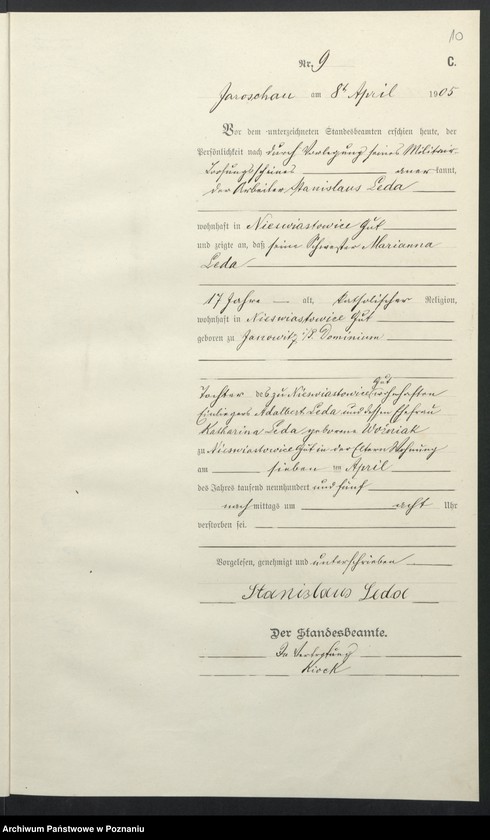 10
Nr. 9 C.
Jaroschau am 8t April 1905
Vor dem unterzeichneten Standesbeamten erschien heute, der
Persönlichkeit nach durch Vorlegung seines Militair-
Loosungsscheines anerkannt,
der Arbeiter Stanislaus Leda
wohnhaft in Nieswiastowice Gut
und zeigte an, daß seine Schwester Marianna
Leda
17 Jahre alt, katholischer Religion,
wohnhaft in Nieswiastowice Gut
geboren zu Janowitz Dominium
Tochter des zu Nieswiastowice Gut wohnhaften
Einliegers Adalbert Leda und dessen Ehefrau
Katharina Leda geborene Woźniak
zu Nieswiastowice Gut in der Eltern Wohnung
am sieben im April
des Jahres tausend neunhundert und fünf
nachmittags um acht Uhr
verstorben sei.
Vorgelesen, genehmigt und unterschrieben
Stanislaus Ledoe
Der Standesbeamte.
In Vertretung
Kiock
Archiwum Państwowe w Poznaniu